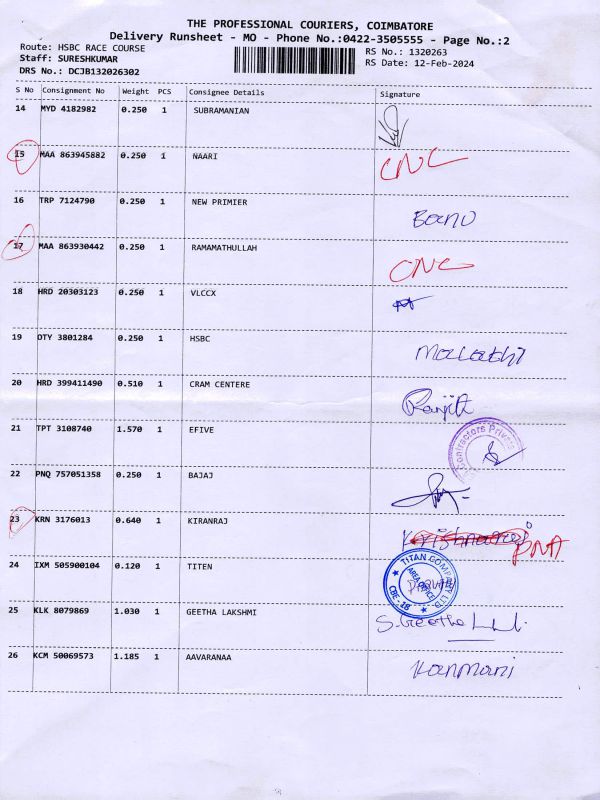 THE PROFESSIONAL COURIERS, COIMBATORE
Delivery Runsheet - MO - Phone No.:0422-3505555 - Page No.:2
Route: HSBC RACE COURSE
RS No.: 1320263
Staff: SURESHKUMAR
RS Date: 12-Feb-2024
DRS No.: DCJB132026302
S No Consignment No Weight PCS Consignee Details Signature
14 MYD 4182982 0.250 1 SUBRAMANIAN
15 MAA 863945882 0.250 1 NAARI CNC
16 TRP 7124790 0.250 1 NEW PRIMIER Banu
17 MAA 863930442 0.250 1 RAMAMATHULLAH CNC
18 HRD 20303123 0.250 1 VLCCX
19 OTY 3801284 0.250 1 HSBC Malathi
20 HRD 399411490 0.510 1 CRAM CENTERE Ranjith
21 TPT 3108740 1.570 1 EFIVE Contractors Private
22 PNQ 757051358 0.250 1 BAJAJ
23 KRN 3176013 0.640 1 KIRANRAJ Krishnaraj DNA
24 IXM 505900104 0.120 1 TITEN TITAN COMPANY LTD. AREA OFFICE CBE-18
25 KLK 8079869 1.030 1 GEETHA LAKSHMI S. Geetha
26 KCM 50069573 1.185 1 AAVARANAA Kanmani